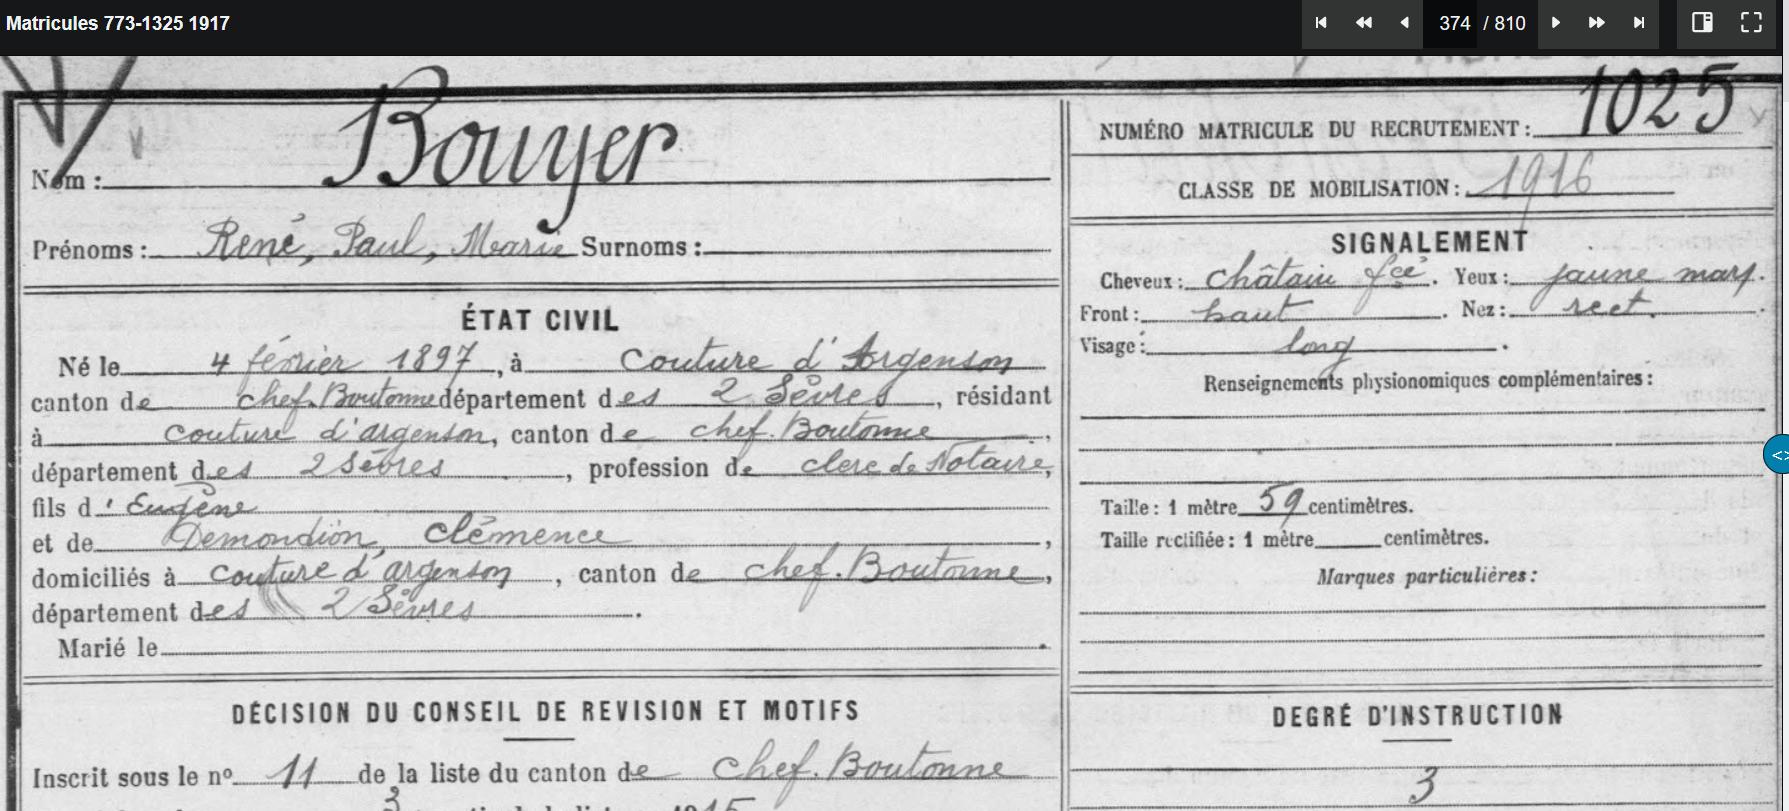 Matricules 773-1325 1917
374 / 810
Nom : Bouyer
NUMÉRO MATRICULE DU RECRUTEMENT : 1025
CLASSE DE MOBILISATION : 1916
Prénoms : René, Paul, Marie Surnoms :
SIGNALEMENT
Cheveux : châtain fcé. Yeux : jaune mar
Front : haut. Nez : rect.
Visage : long.
Renseignements physionomiques complémentaires :
Taille : 1 mètre 59 centimètres.
Taille rectifiée : 1 mètre centimètres.
Marques particulières :
ÉTAT CIVIL
Né le 4 février 1897, à Couture d'Argenson
canton de chef-Boutonne département des 2 Sèvres, résidant
à couture d'argenson, canton de chef-Boutonne,
département des 2 Sèvres, profession de clerc de Notaire,
fils d' Eugène
et de Demondion, Clémence,
domiciliés à couture d'argenson, canton de chef-Boutonne,
département des 2 Sèvres.
Marié le .
DÉCISION DU CONSEIL DE REVISION ET MOTIFS
Inscrit sous le nº 11 de la liste du canton de Chef-Boutonne
DEGRÉ D'INSTRUCTION
3